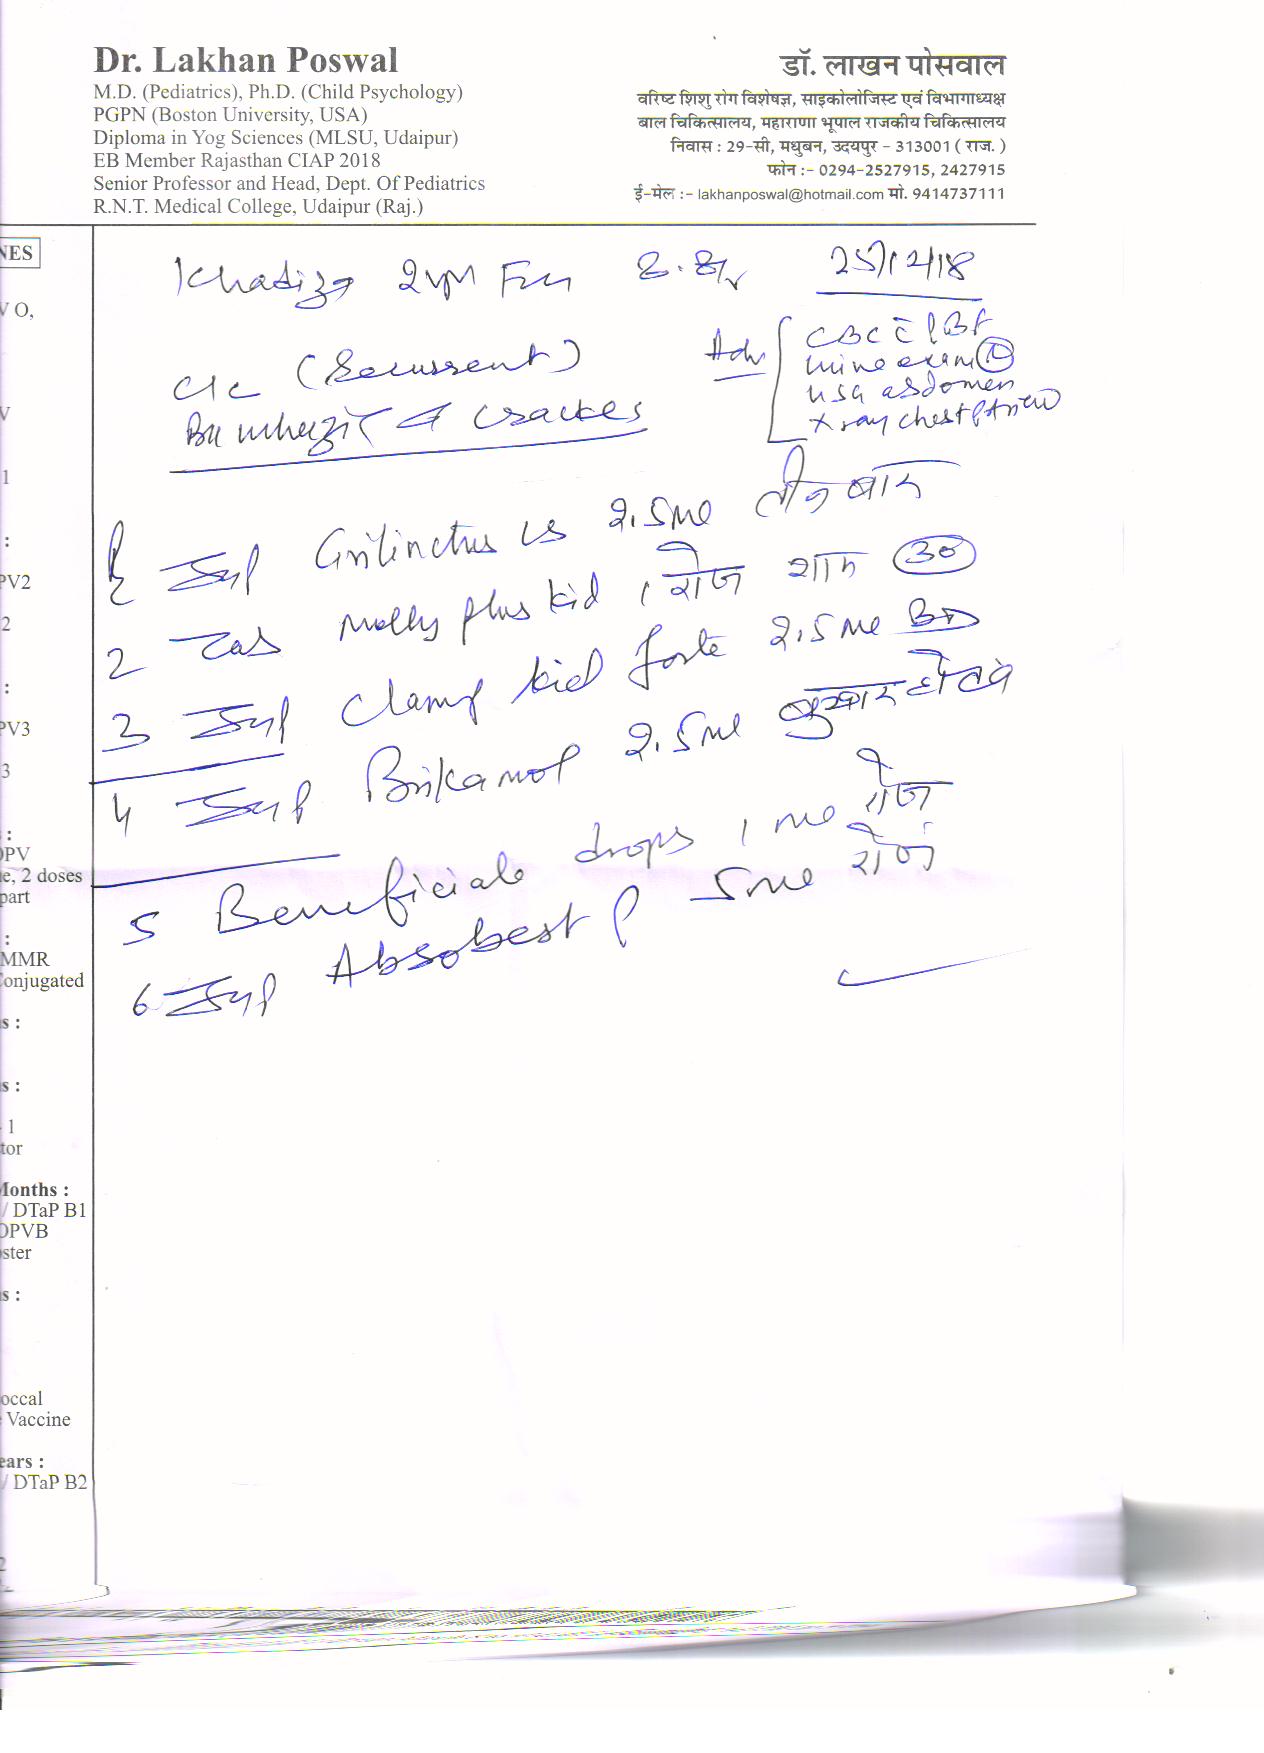 Dr. Lakhan Poswal
M.D. (Pediatrics), Ph.D. (Child Psychology)
PGPN (Boston University, USA)
Diploma in Yog Sciences (MLSU, Udaipur)
EB Member Rajasthan CIAP 2018
Senior Professor and Head, Dept. Of Pediatrics
R.N.T. Medical College, Udaipur (Raj.)
डॉ. लाखन पोसवाल
वरिष्ट शिशु रोग विशेषज्ञ, साइकोलोजिस्ट एवं विभागाध्यक्ष
बाल चिकित्सालय, महाराणा भूपाल राजकीय चिकित्सालय
निवास : 29-सी, मधुबन, उदयपुर - 313001 ( राज. )
फोन :- 0294-2527915, 2427915
ई-मेल :- lakhanposwal@hotmail.com मो. 9414737111
NES
V O,
V
1
:
PV2
2
:
PV3
3
:
OPV
e, 2 doses
part
:
MMR
onjugated
s :
s :
- 1
tor
Months :
/ DTaP B1
OPVB
ster
s :
occal
Vaccine
ears :
/ DTaP B2
2
Khadiza 25/12/18
c/c (Recurrent)
crackes
Adv CBC
urine exam
usg abdomen
x ray chest PA view
Syp 2.5ml तीन बार
2 Tab plus kid 1 रोज शाम 30
3 Syp Clamp kid forte 2.5ml BD
4 Syp 2.5ml बुखार हो तब
5 Beneficiale drops 1 ml रोज
6 Syp Absobest P 5ml रोज